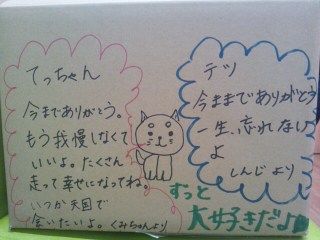 てっちゃん
今までありがとう。
もう我慢しなくて
いいよ。たくさん
走って幸せになってね。
いつか天国で
会いたいよ。くみちゃんより
テツ
今ままでありがとう
一生、忘れない
よ
しんじより
ずっと
大好きだよ